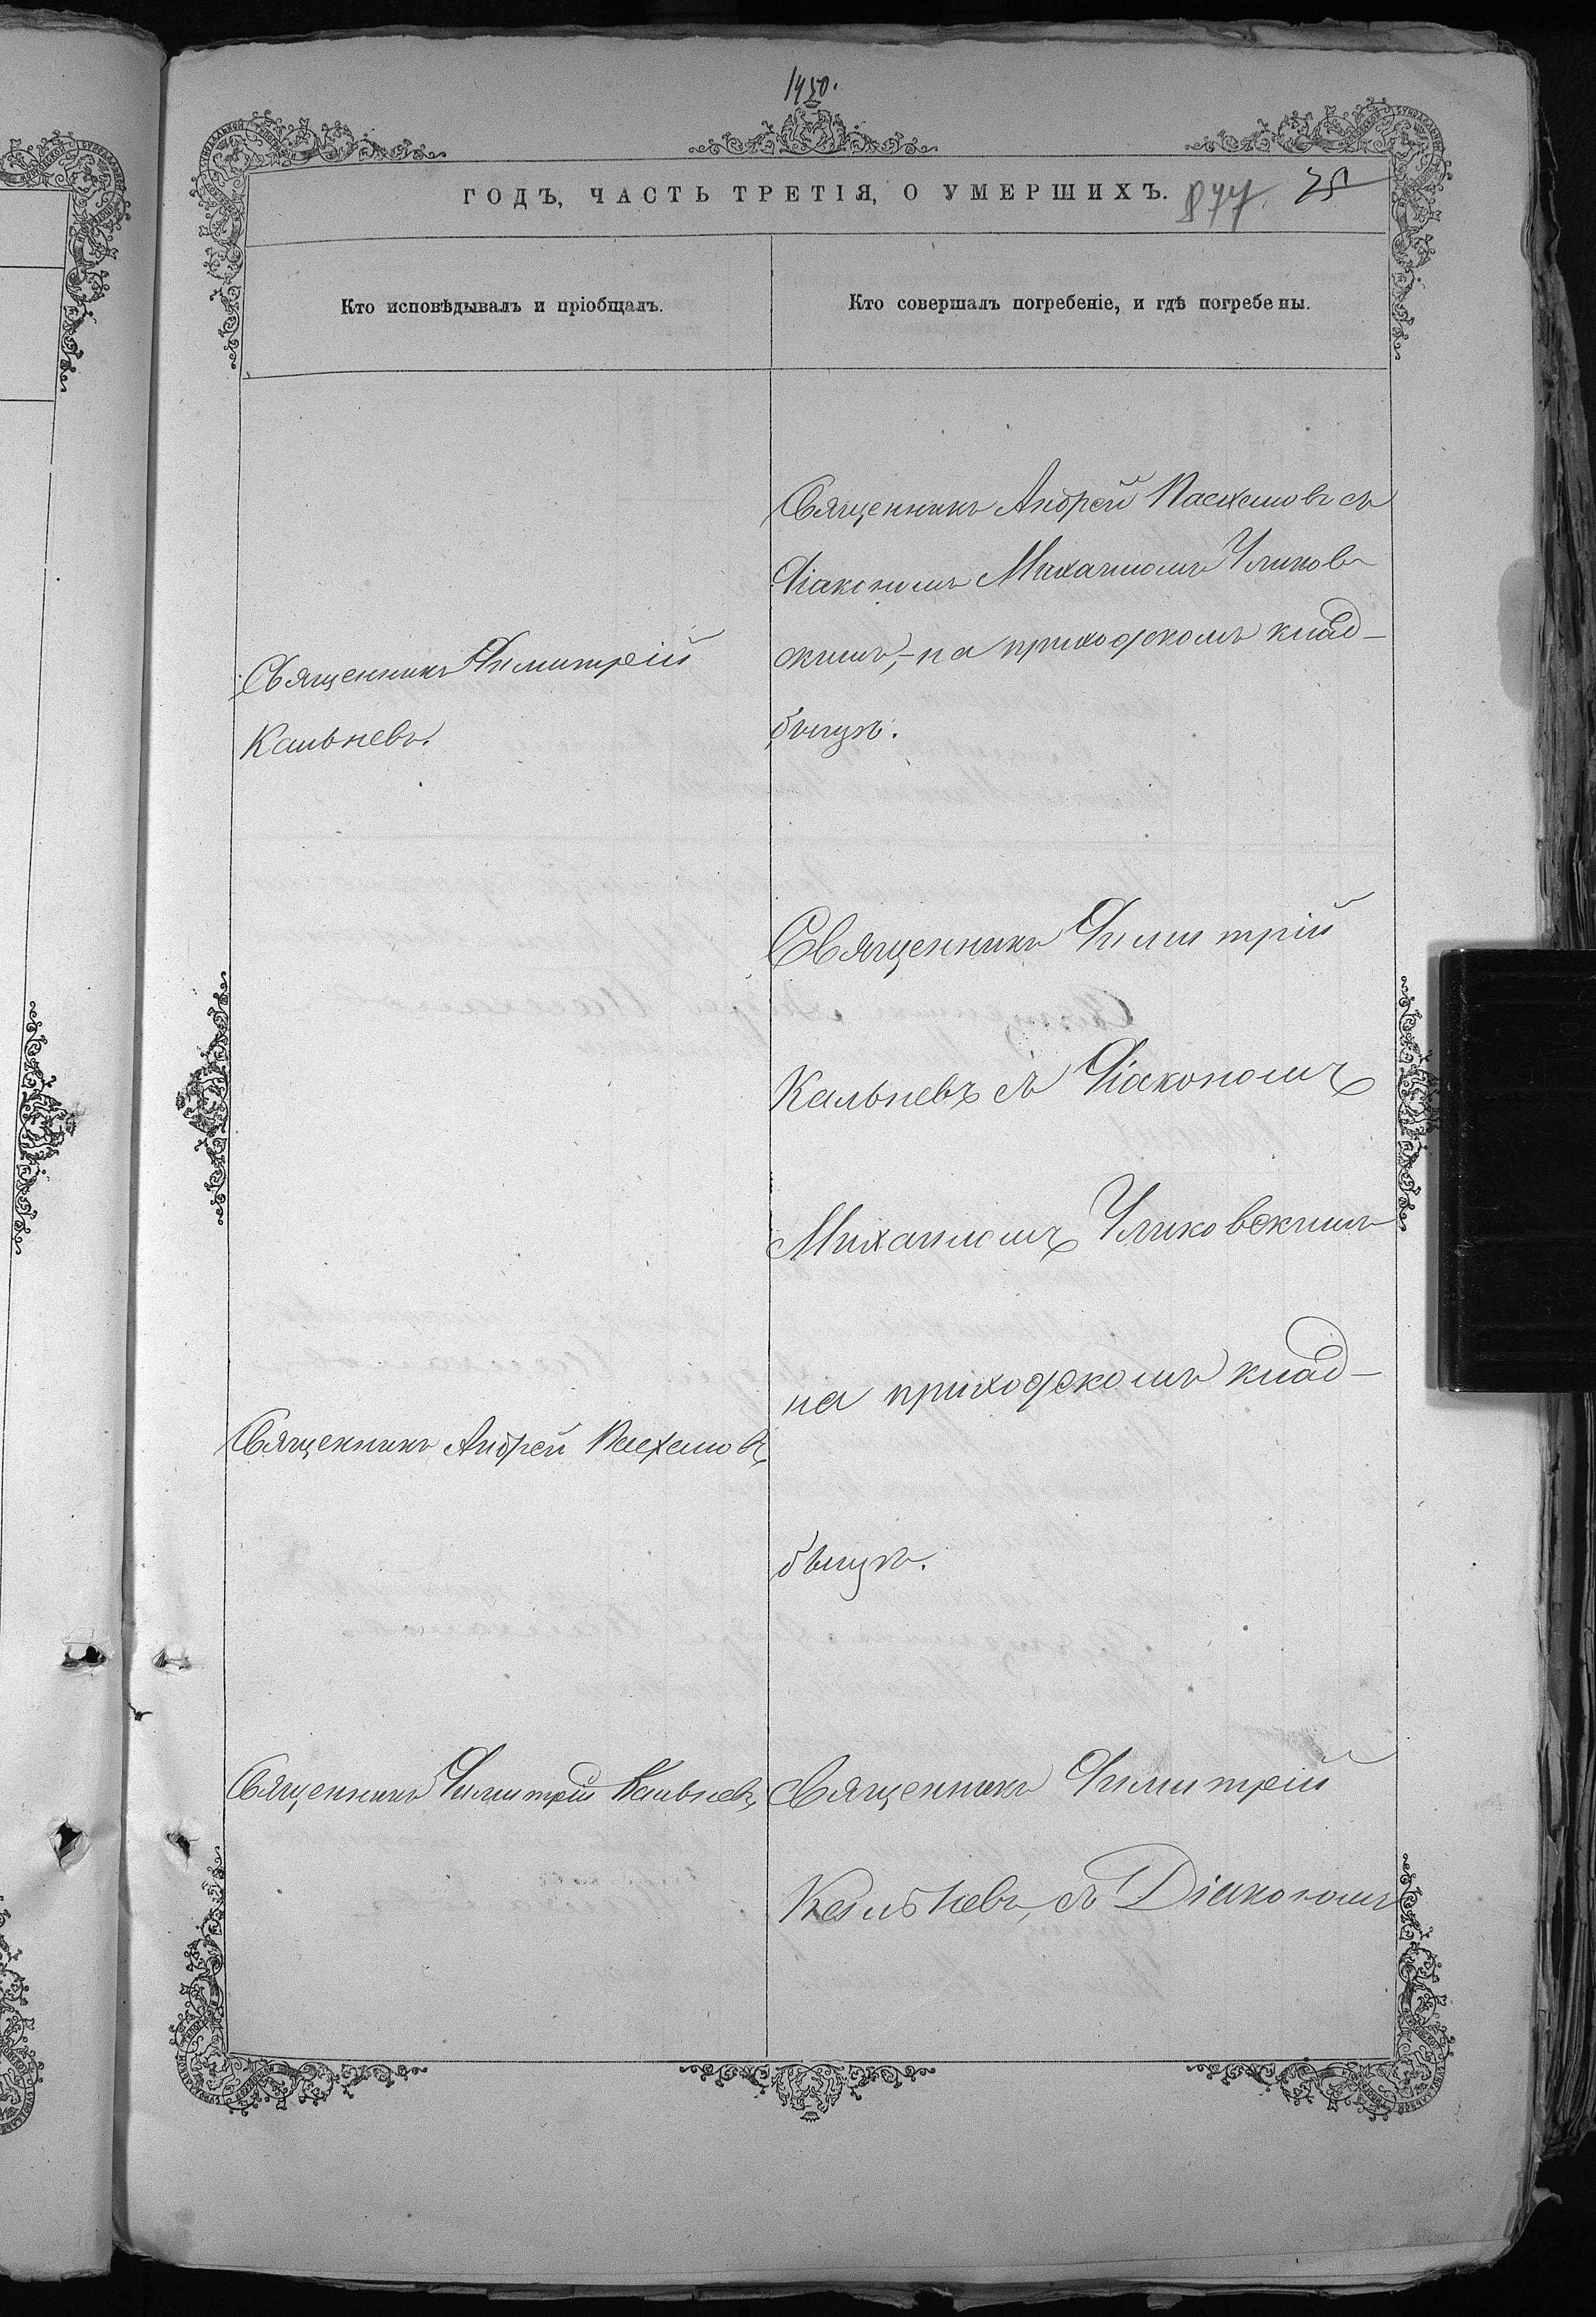 1450.
ГОДЪ, ЧАСТЬ ТРЕТІЯ, О УМЕРШИХЪ.
877.
Кто исповѣдывалъ и пріобщалъ.
Кто совершалъ погребеніе, и гдѣ погребены.
Священникъ Димитрій
Кальневъ.
Священникъ Андрей Пасхаловъ съ
Діакономъ Михаиломъ Уликов
скимъ, - на приходскомъ клад-
бищѣ.
Священникъ Димитрій
Кальневъ съ Діакономъ
Михаиломъ Уликовскимъ
на приходскомъ клад-
бищѣ.
Священникъ Андрей Пасхаловъ
Священникъ Димитрій Кальневъ
Священникъ Димитрій
Кальневъ, съ Діакономъ